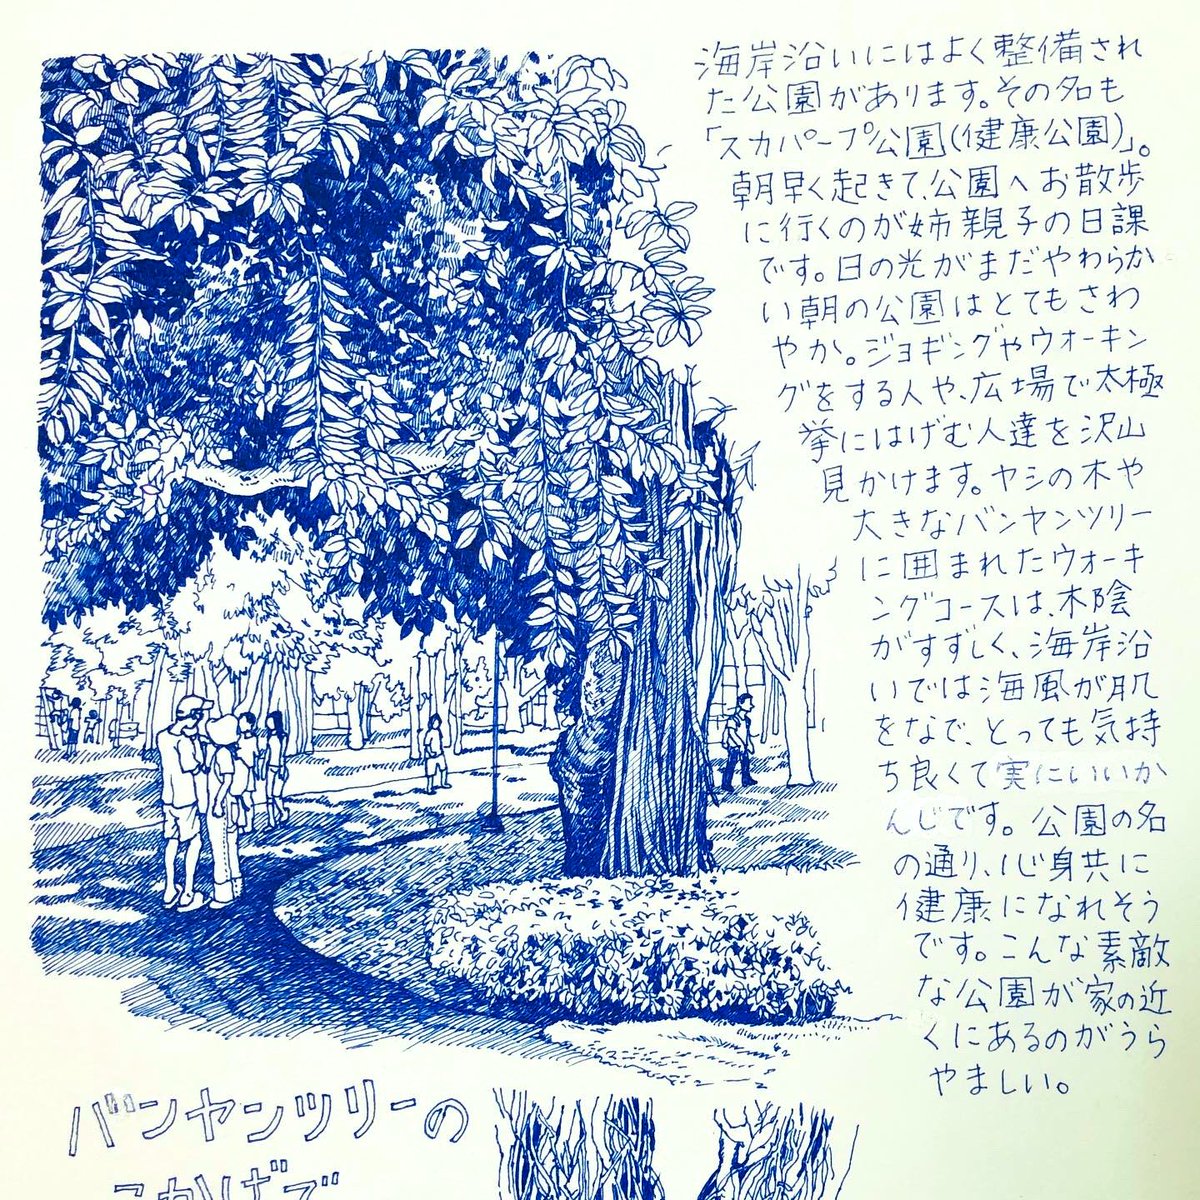 海岸沿いにはよく整備され
た公園があります。その名も
「スカパープ公園(健康公園)」。
朝早く起きて、公園へお散歩
に行くのが姉親子の日課
です。日の光がまだやわらか
い朝の公園はとてもさわ
やか。ジョギングやウォーキン
グをする人や、広場で太極
拳にはげむ人達を沢山
見かけます。ヤシの木や
大きなバンヤンツリー
に囲まれたウォーキ
ングコースは、木陰
がすずしく、海岸沿
いでは海風が肌
をなで、とっても気持
ち良くて実にいいか
んじです。公園の名
の通り、心身共に
健康になれそう
です。こんな素敵
な公園が家の近
くにあるのがうら
やましい。
バンヤンツリーの
こかげで